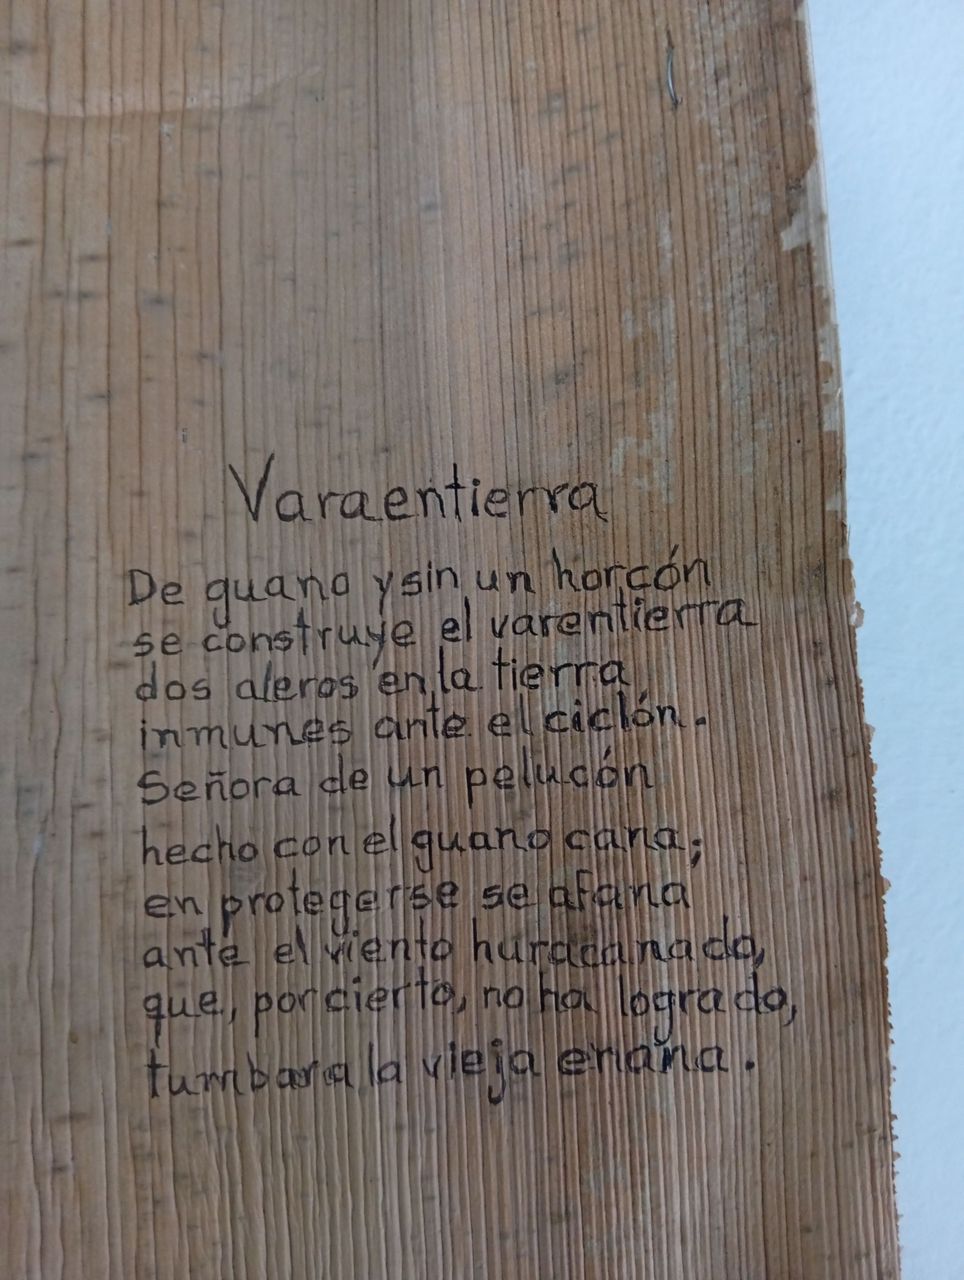 Varaentierra
De guano y sin un horcón
se construye el varentierra
dos aleros en la tierra
inmunes ante el ciclón.
Señora de un pelucón
hecho con el guano cana;
en protegerse se afana
ante el viento huracanado,
que, por cierto, no ha logrado,
tumbar a la vieja enana.